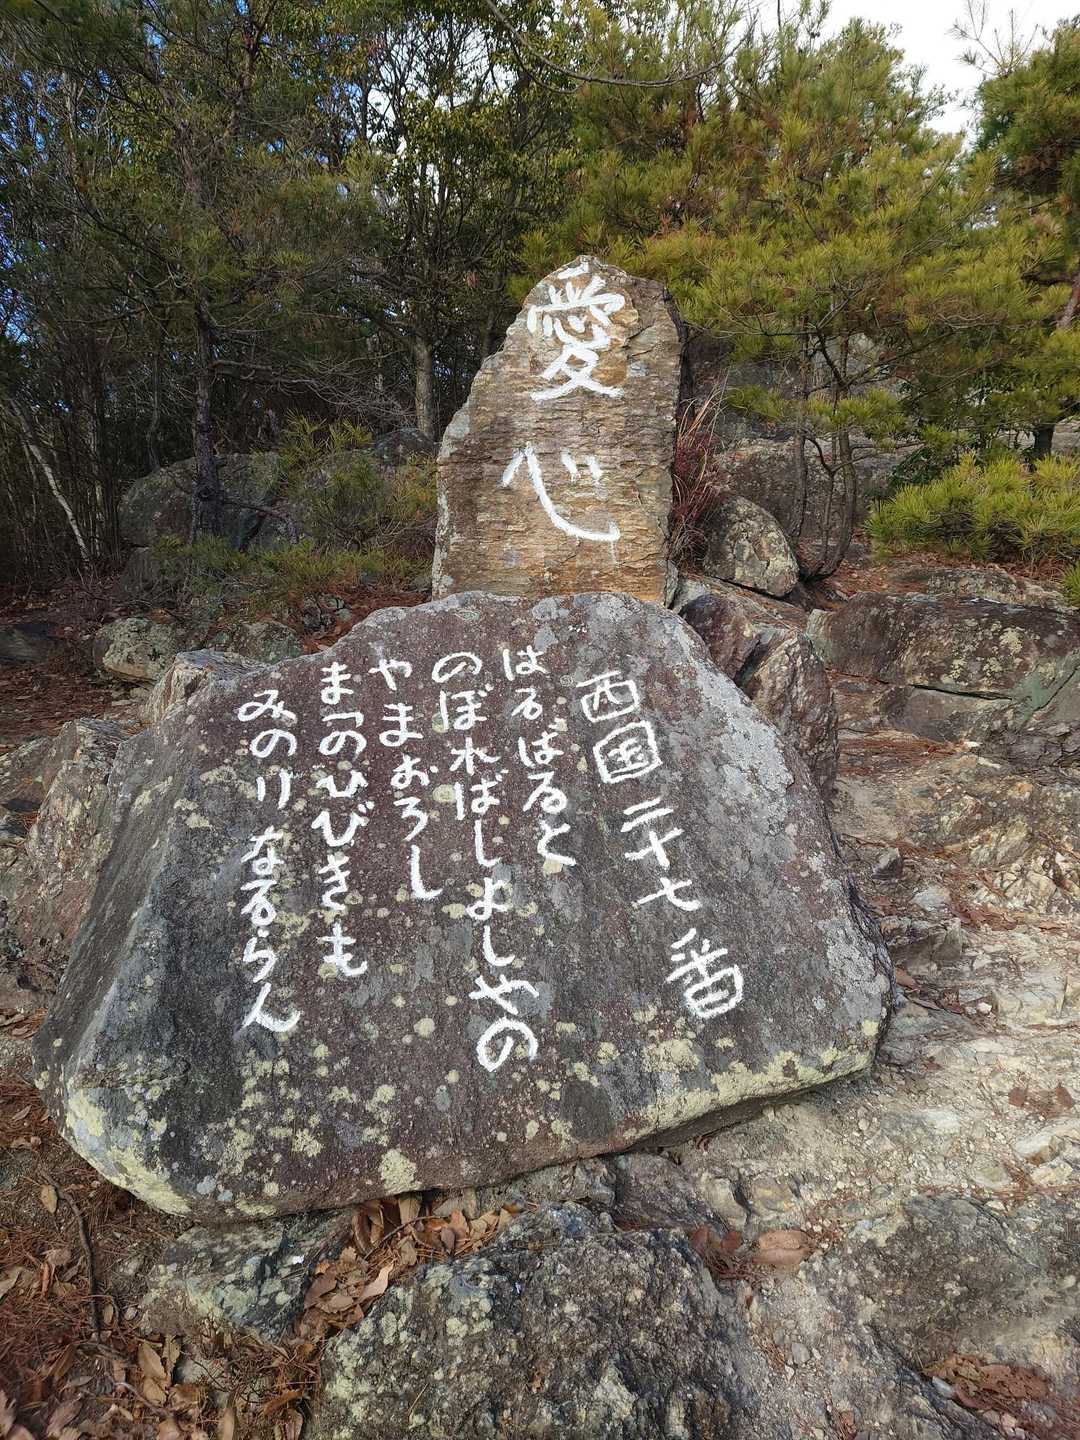 愛心
西国二十七番
はろばると
のぼればしよしやの
やまおろし
まつのひびきも
みのりなるらん